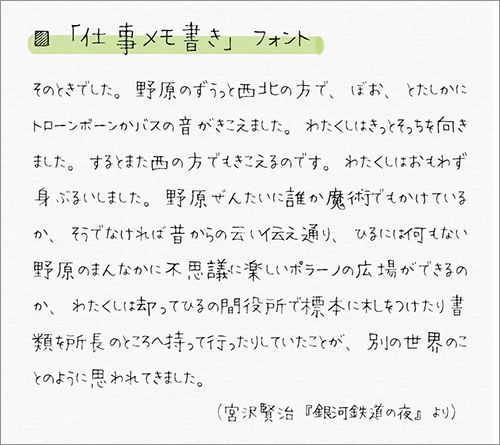 「仕事メモ書き」フォント
そのときでした。野原のずうっと西北の方で、ぼお、とたしかに
トローンボーンかバスの音がきこえました。わたくしはきっとそっちを向き
ました。するとまた西の方でもきこえるのです。わたくしはおもわず
身ぶるいしました。野原ぜんたいに誰か魔術でもかけている
か、そうでなければ昔からの云い伝え通り、ひるには何もない
野原のまんなかに不思議に楽しいポラーノの広場ができるの
か、わたくしは却ってひるの間役所で標本に札をつけたり書
類を所長のところへ持って行ったりしていたことが、別の世界のこ
とのように思われてきました。
（宮沢賢治『銀河鉄道の夜』より）